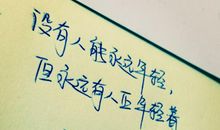 没有人能永远年轻，
但永远有人正年轻着